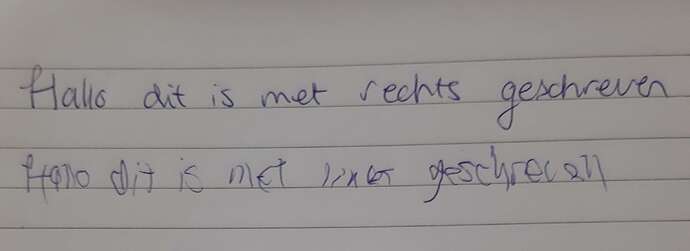 Hallo dit is met rechts geschreven
Hallo dit is met links geschreven